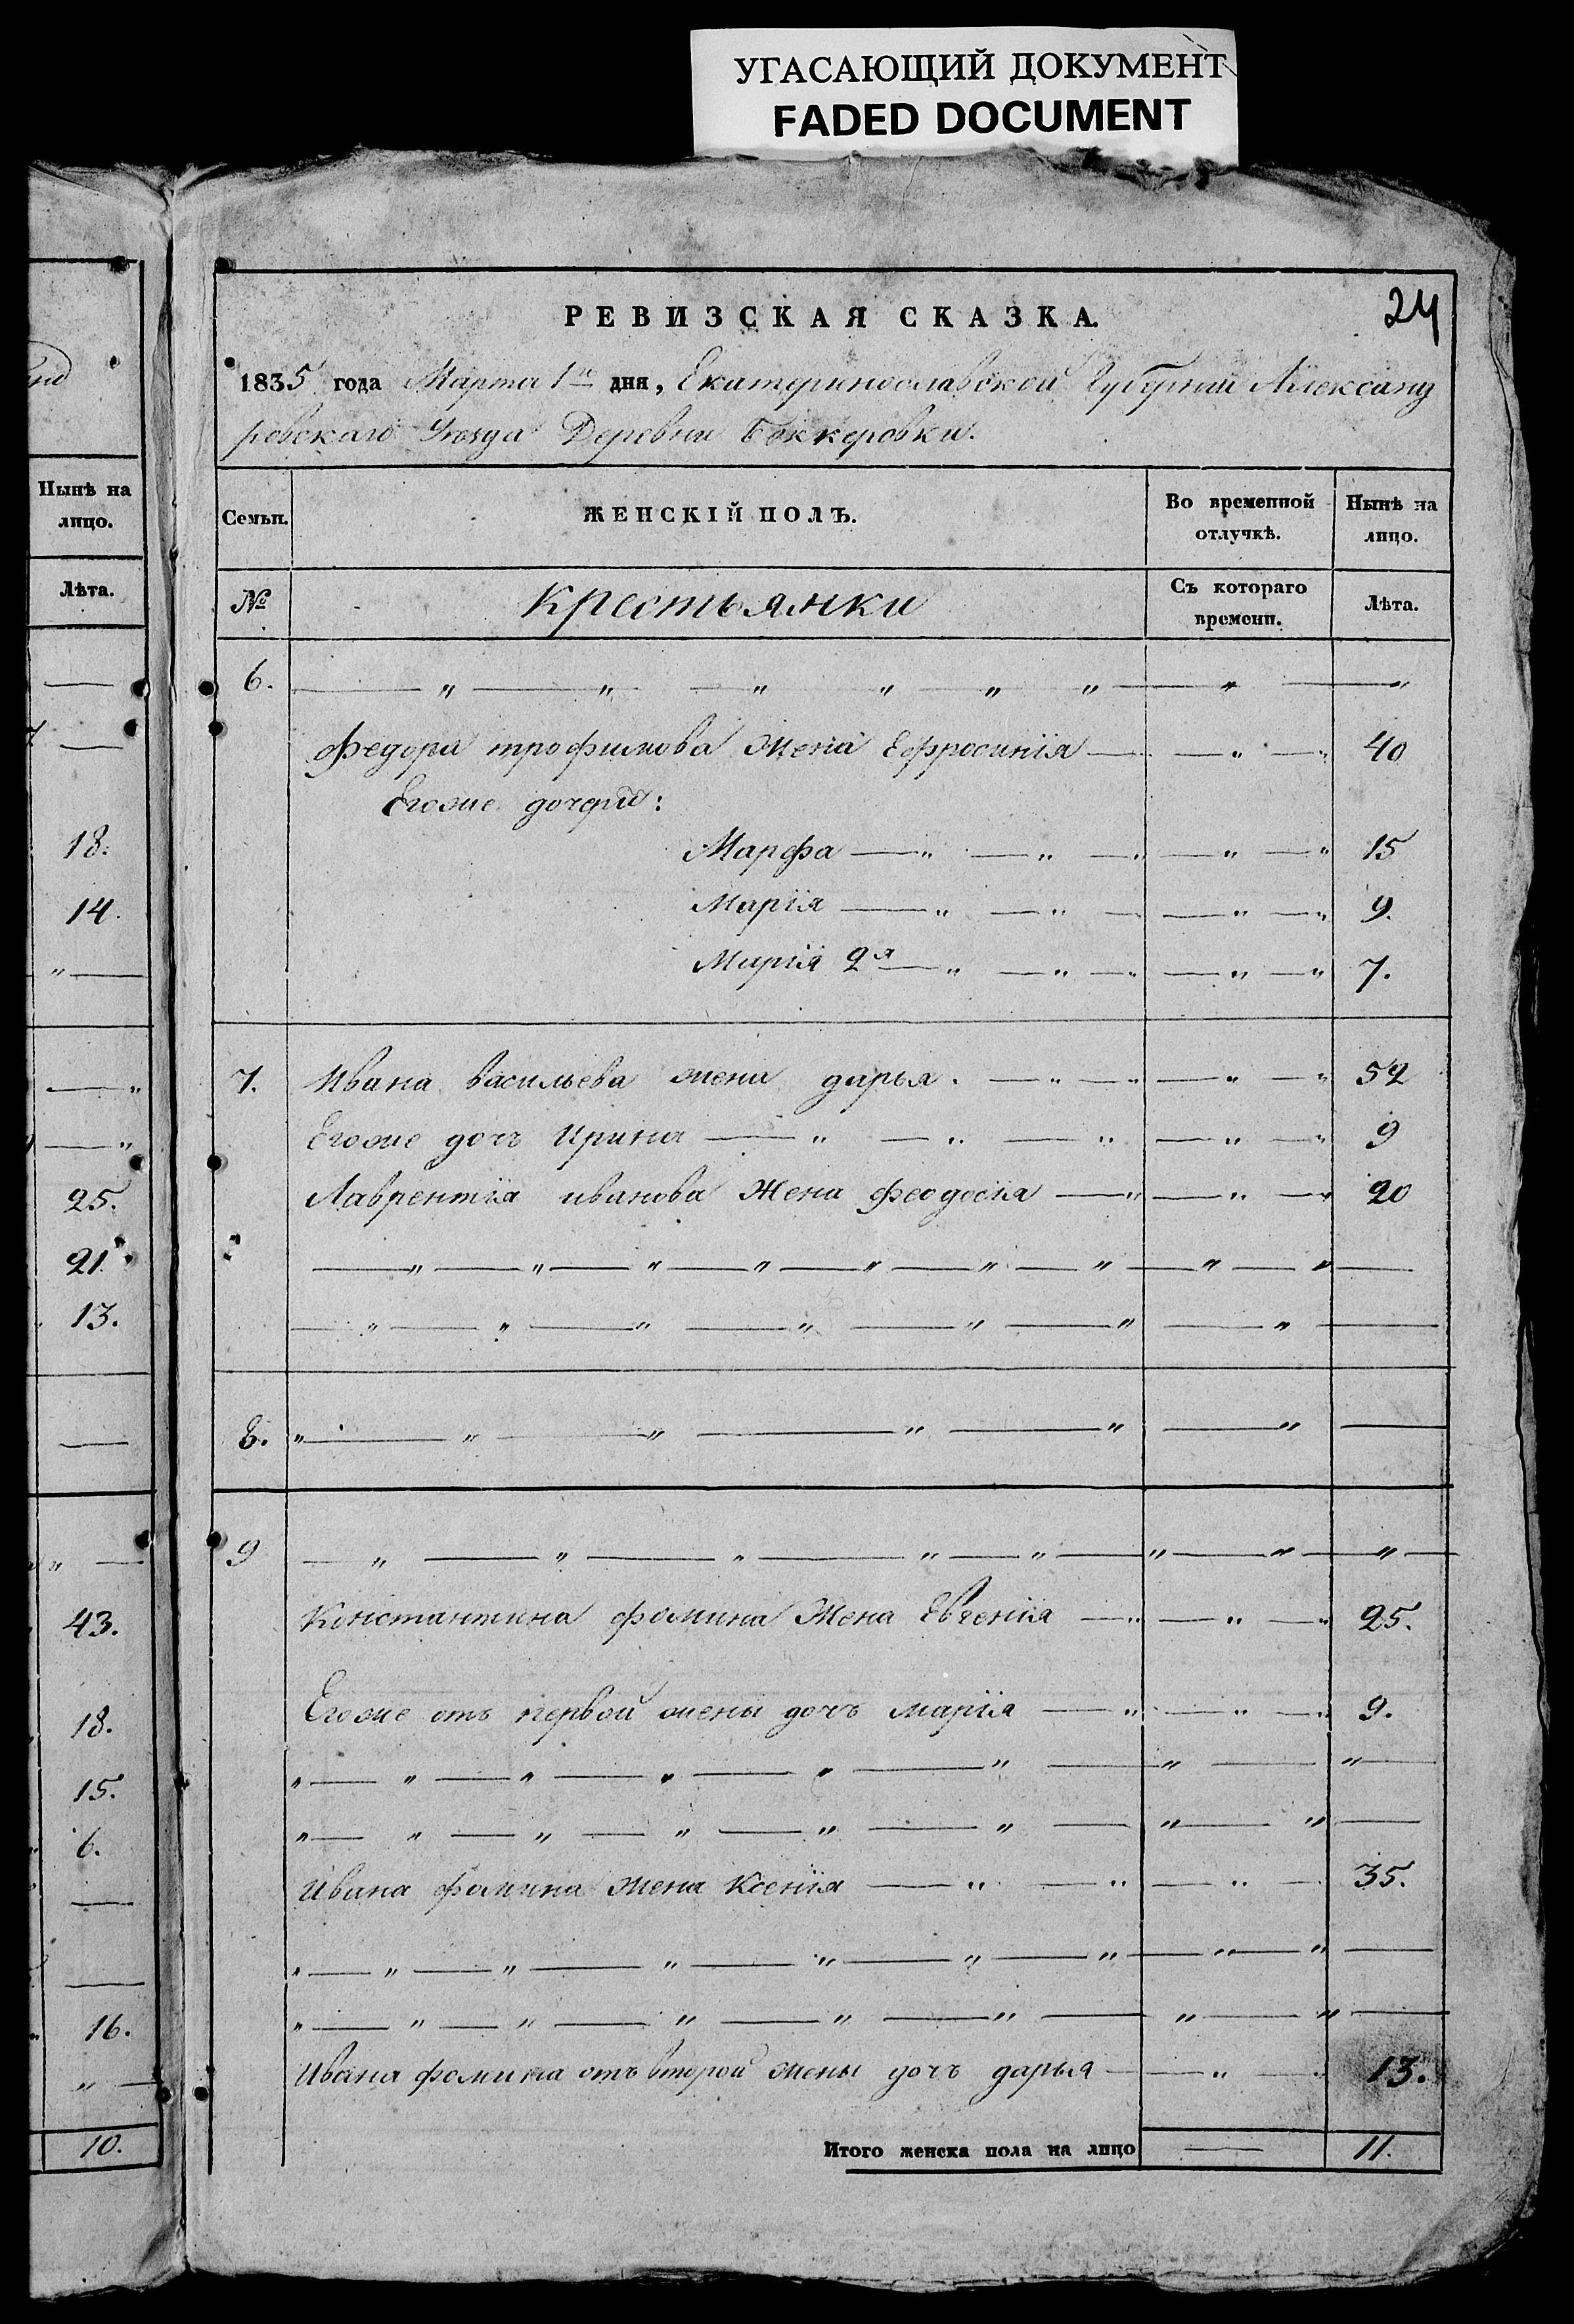 УГАСАЮЩИЙ ДОКУМЕНТ
FADED DOCUMENT
Нынѣ на
лицо.
Лѣта.
18.
14.
25.
21.
13.
43.
18.
15.
6.
16.
10.
24
РЕВИЗСКАЯ СКАЗКА.
1835 года Марта 1го дня, Екатеринославской Губернии Александ
ровскаго Уезда Деревни Беккеровки.
Семьи. ЖЕНСКІЙ ПОЛЪ. Во временной отлучкѣ. Нынѣ на лицо.
№ Крестьянки Съ котораго времени. Лѣта.
6. — " — " — " — " — " — " — " — "
Федора трофимова Жена Ефросинія — — " — " 40
Егоже дочери:
Марфа — " — " — " — " — " 15
Марія — " — " — — " — " 9.
Марія 2я — " — " — " — " — " 7.
7. Ивана васильева жена дарья. — " — " — " — " 52
Егоже дочь Ирина — " — " — " — " — " 9
Лаврентія иванова Жена феодосія — " — " — " 20
— " — " — " — " — " — " — " — " — " —
— " — " — " — " — " — " — " —
8. " — " — " — " — " — " —
9 — " — " — " — " — " — " — " — " —
Константина фомина Жена Евгенія — " — " — " 25.
Егоже отъ первой жены дочь марія — " — " — " 9.
" — " — " — " — " — " — " — " —
" — " — " — " — " — " — " — " —
Ивана фомина жена Ксенія — " — " — " — 35.
" — " — " — " — " — " — " — " — " —
" — " — " — " — " — " — " — " —
Ивана фомина отъ второй жены дочь дарья — — " — " 13.
Итого женска пола на лицо — 11.